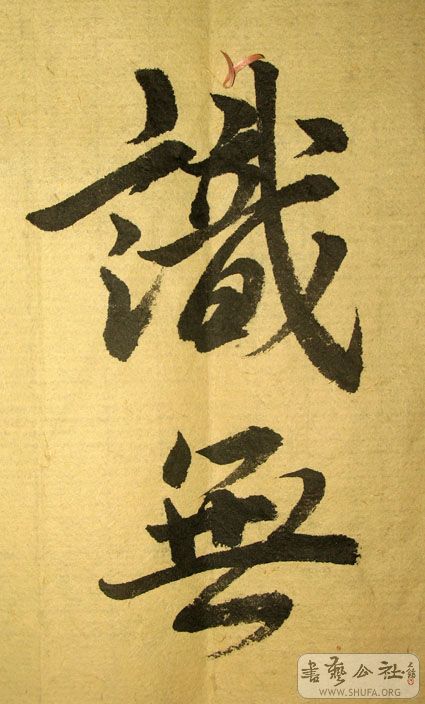 識
無
書藝公社
WWW.SHUFA.ORG